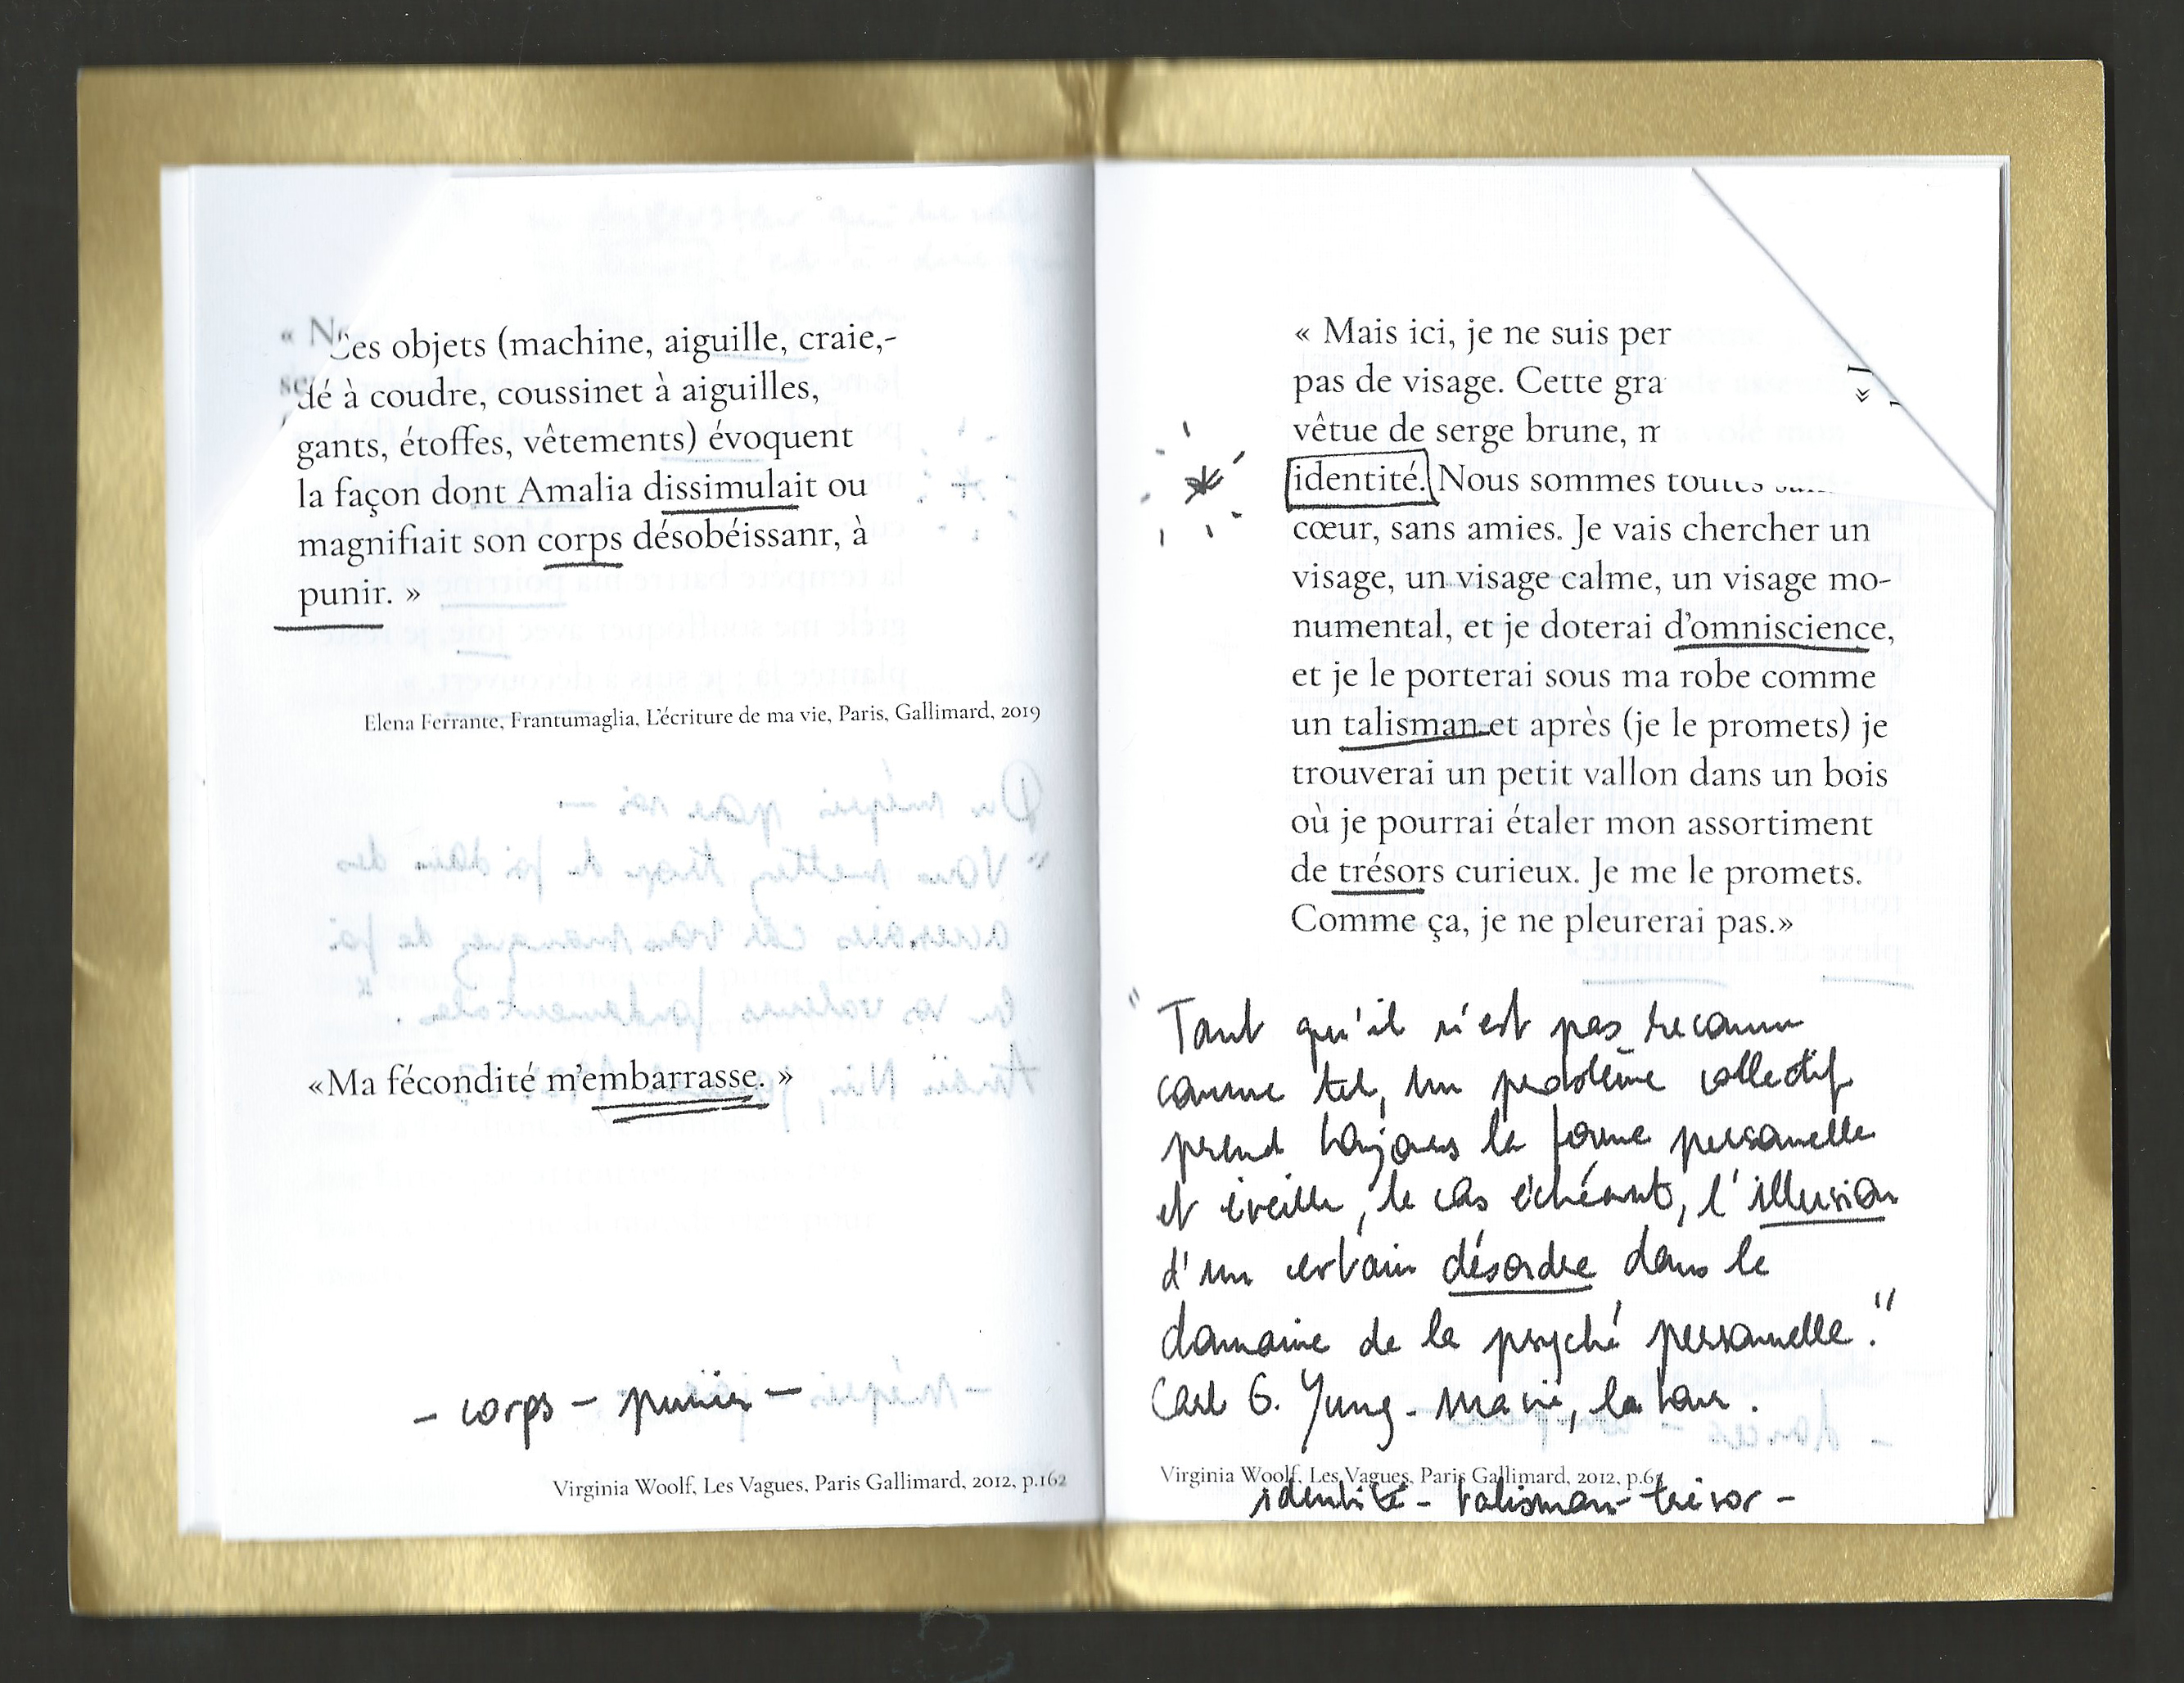 « N
Ces objets (machine, aiguille, craie,-
dé à coudre, coussinet à aiguilles,
gants, étoffes, vêtements) évoquent
la façon dont Amalia dissimulait ou
magnifiait son corps désobéissanr, à
punir. »
Elena Ferrante, Frantumaglia, L'écriture de ma vie, Paris, Gallimard, 2019
«Ma fécondité m'embarrasse. »
- corps - punir -
Virginia Woolf, Les Vagues, Paris Gallimard, 2012, p.162
« Mais ici, je ne suis per
pas de visage. Cette gra
vêtue de serge brune, m
identité. Nous sommes toutes
cœur, sans amies. Je vais chercher un
visage, un visage calme, un visage mo-
numental, et je doterai d'omniscience,
et je le porterai sous ma robe comme
un talisman et après (je le promets) je
trouverai un petit vallon dans un bois
où je pourrai étaler mon assortiment
de trésors curieux. Je me le promets.
Comme ça, je ne pleurerai pas.»
"Tant qu'il n'est pas reconnu
comme tel, un problème collectif
prend toujours la forme personnelle
et éveille, le cas échéant, l'illusion
d'un certain désordre dans le
domaine de la psyché personnelle."
Carl G. Yung - Ma vie, la tour.
Virginia Woolf, Les Vagues, Paris Gallimard, 2012, p.6
identité - talisman - trésor -